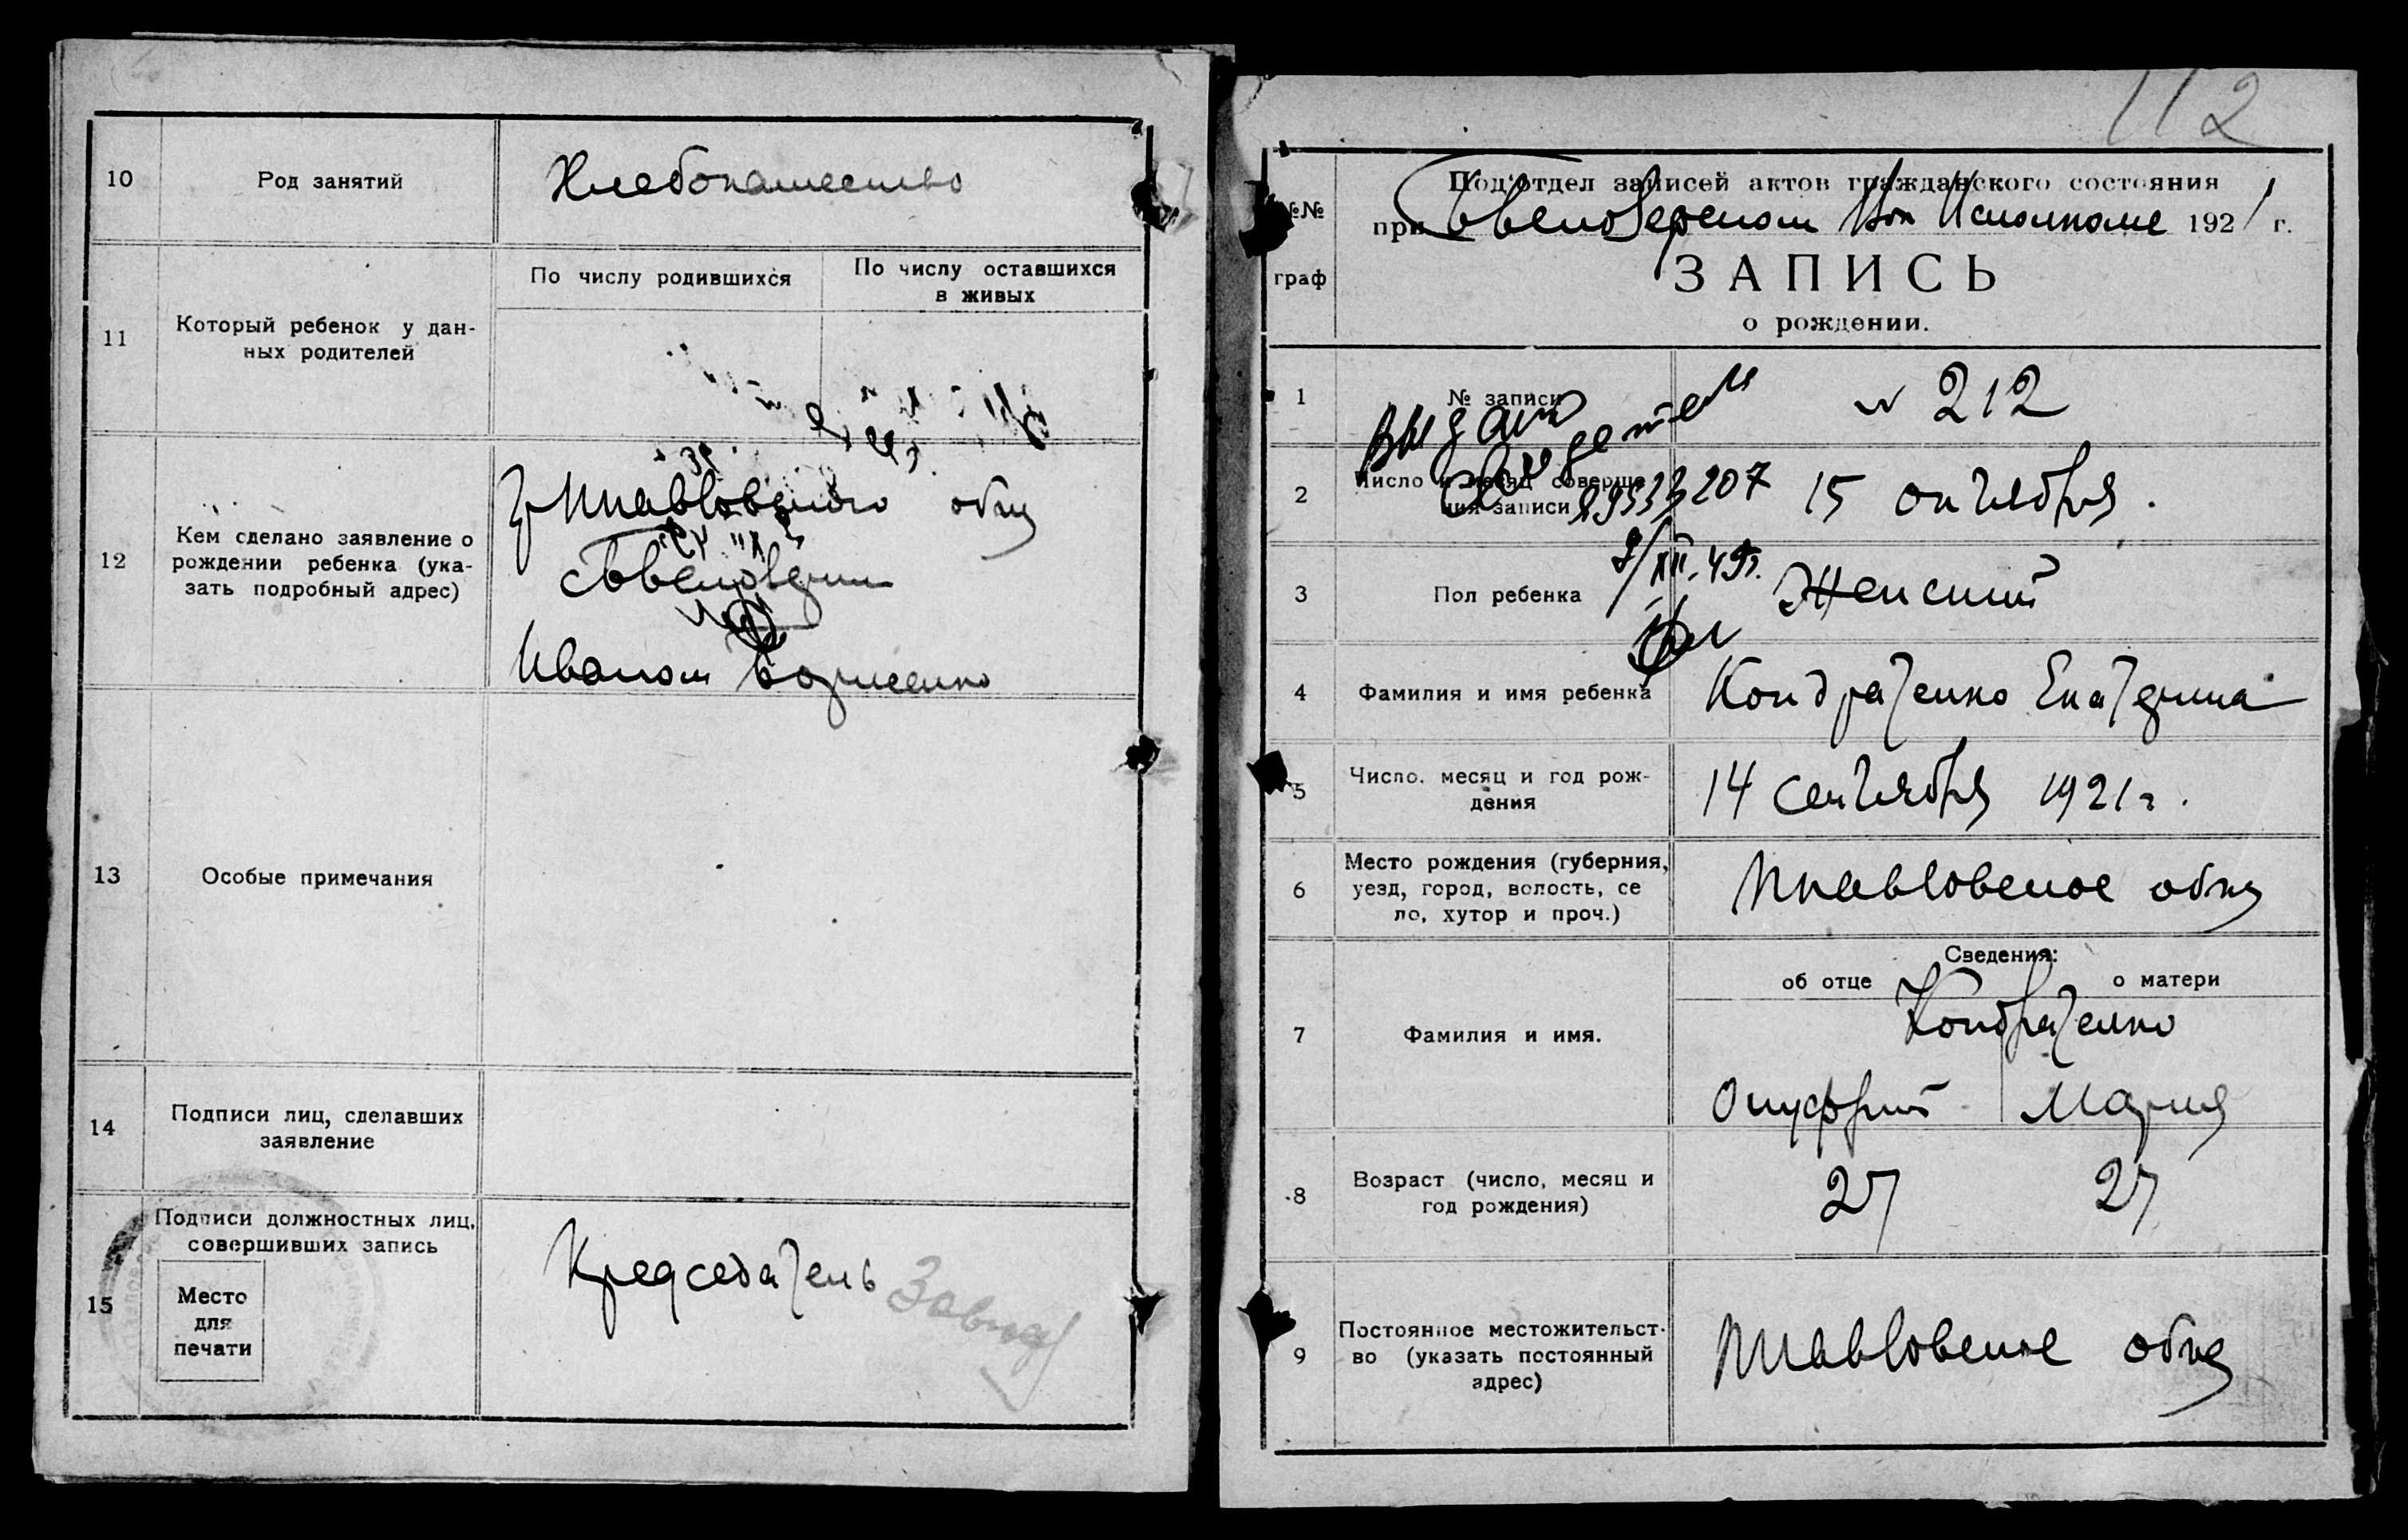 10
Род занятий
Хлебопашество
11
Который ребенок у дан-
ных родителей
По числу родившихся
По числу оставшихся
в живых
12
Кем сделано заявление о
рождении ребенка (ука-
зать подробный адрес)
общ
Иваном Борисенко
13
Особые примечания
14
Подписи лиц, сделавших
заявление
15
Подписи должностных лиц,
совершивших запись
Место
для
печати
Председатель
112
№№
граф
Под'отдел записей актов гражданского состояния
при Исполкоме 1921 г.
ЗАПИСЬ
о рождении.
1
№ записи
№ 212
Выдано
свидетел
2
Число и месяц соверше-
ния записи
15 октября.
207
9/XII.49г.
3
Пол ребенка
Женский
4
Фамилия и имя ребенка
Кондратенко Екатерина
5
Число, месяц и год рож-
дения
14 сентября 1921 г.
6
Место рождения (губерния,
уезд, город, волость, се
ло, хутор и проч.)
общ
7
Фамилия и имя.
Сведения:
об отце
о матери
Кондратенко
Онуфрий
Мария
8
Возраст (число, месяц и
год рождения)
27
27
9
Постоянное местожительст-
во (указать постоянный
адрес)
общ